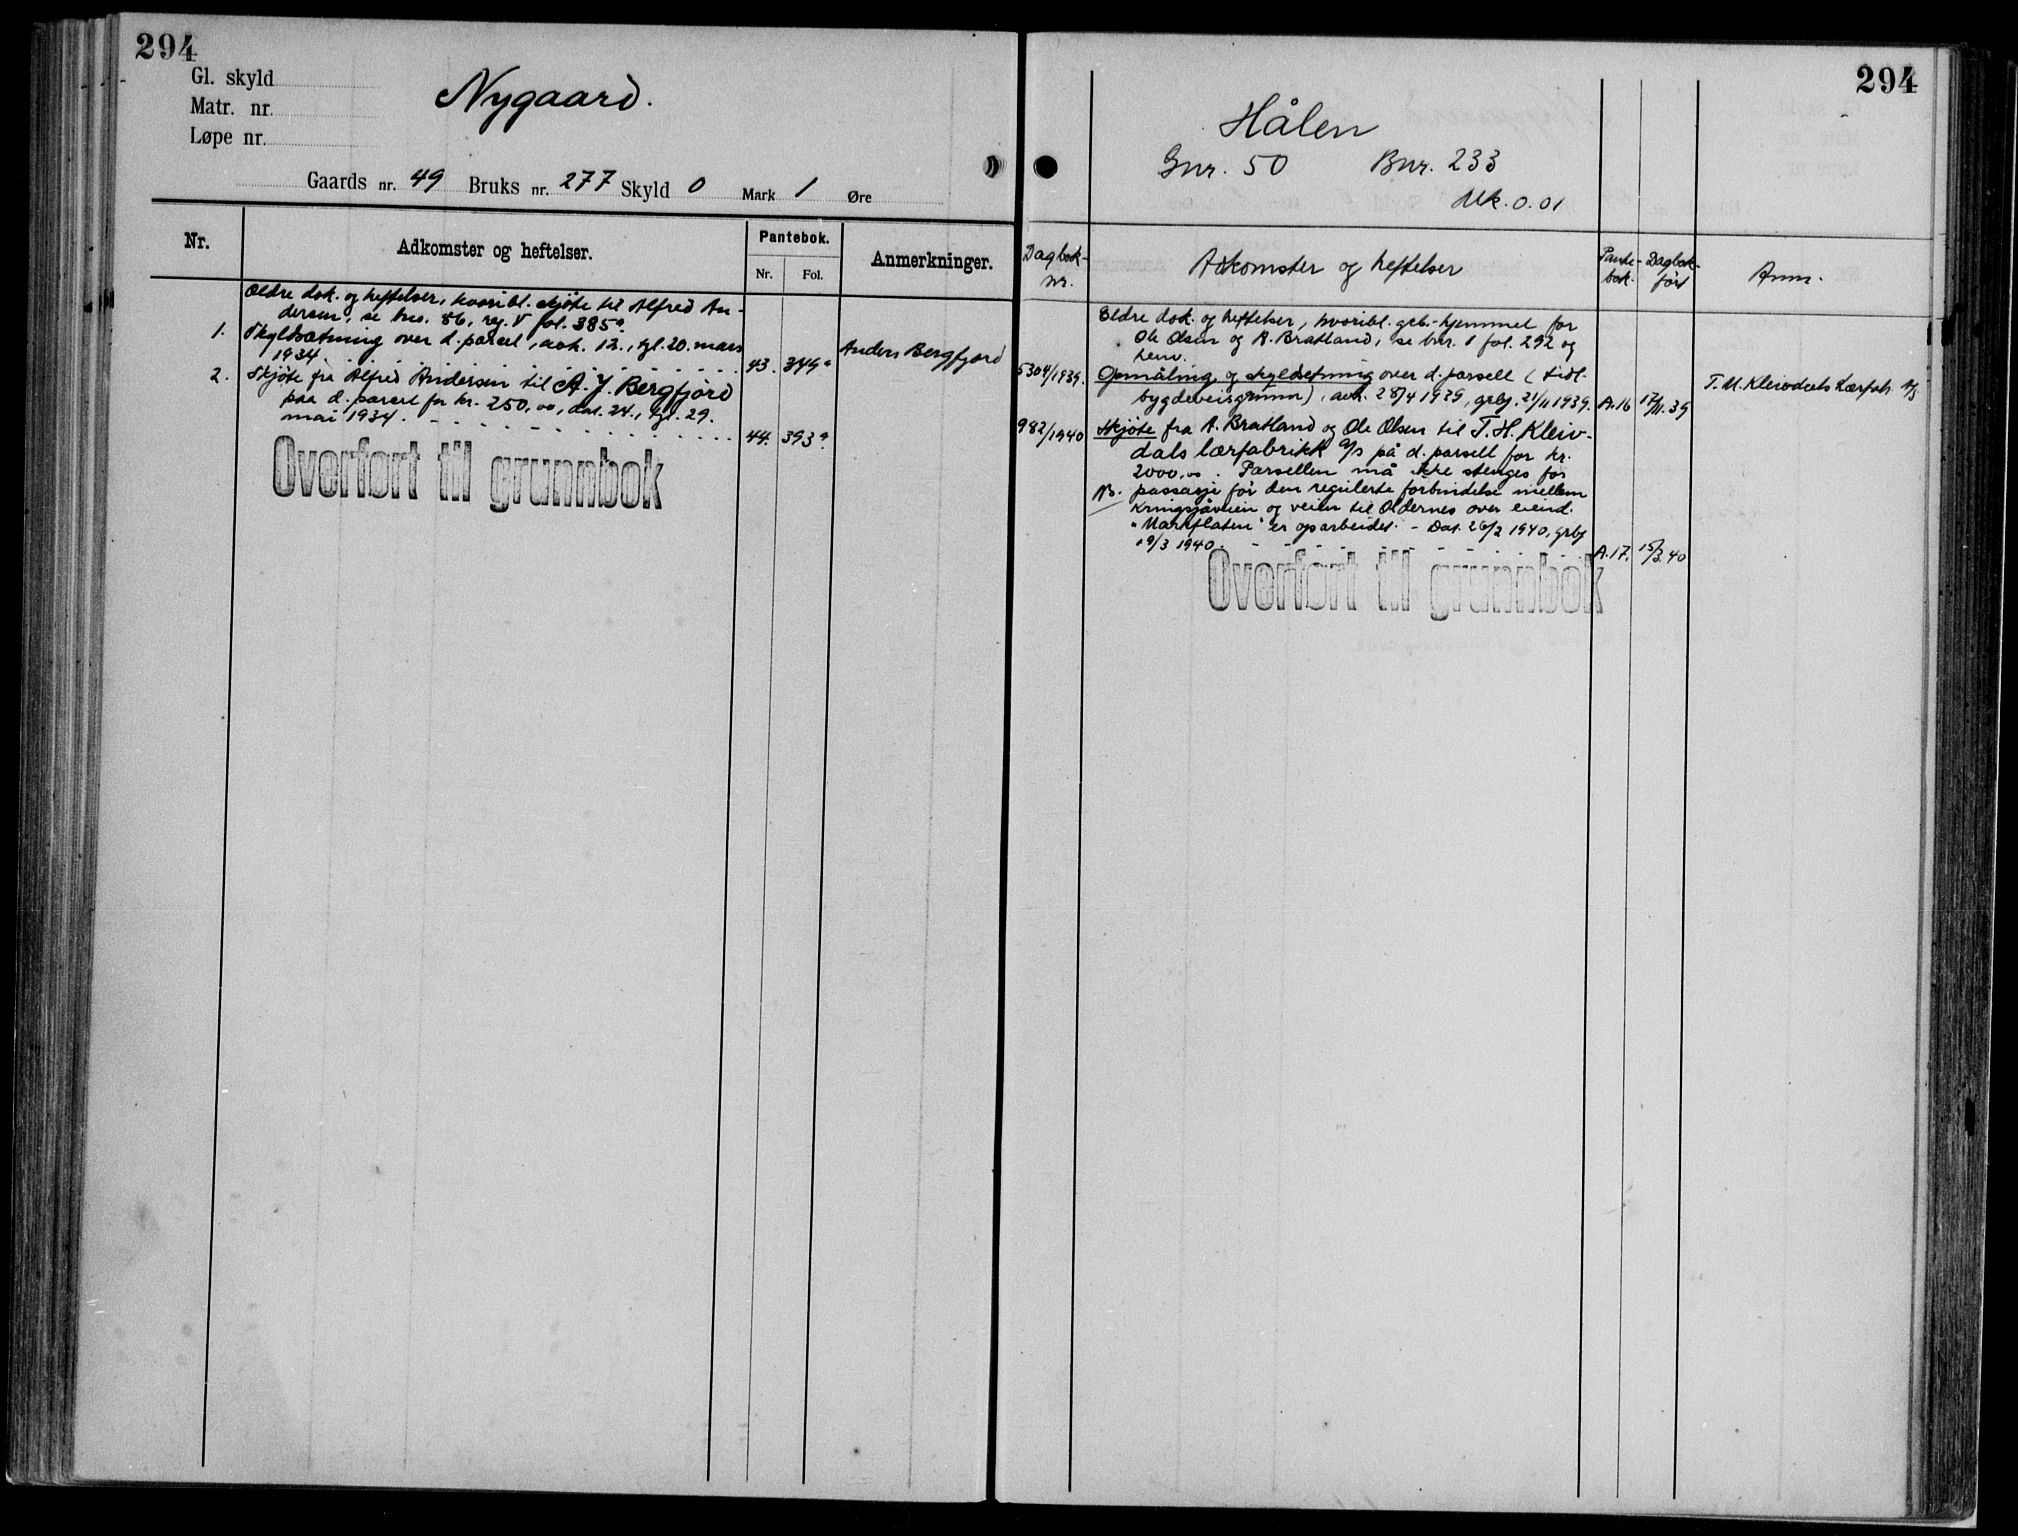 294
Gl. skyld
Matr. nr.
Løpe nr.
Nygaard.
Gaards nr. 49 Bruks nr. 277 Skyld 0 Mark 1 Øre
Nr.
Adkomster og heftelser.
Pantebok.
Nr. Fol.
Anmerkninger.
Ældre dok. og heftelser, hvoribl. skjøte til Alfred An-
dersen, se bns. 86, reg. V fol. 385a
1. Skyldsætning over d. parcel, avh. 12., tgl. 20. mars
1934. 43. 349a Anders Bergfjord
2. Skjøte fra Alfred Andersen til A. J. Bergfjord
paa d. parcel for kr. 250,00, dat. 24., tgl. 29.
mai 1934. 44. 393a
Overført til grunnbok
294
Hålen
Gnr. 50 Bnr. 233
Mk. 0.01
Dagbok-
nr.
Adkomster og heftelser
Pante-
bok.
Dagbok-
ført
Anm.
Eldre dok. og heftelser, hvoribl. grb.-hjemmel for
Ole Olsen og A. Bratland, se bnr. 1 fol. 292 og
henv.
5304/1939. Opmåling og skyldsetning over d. parsell (tidl.
bygdeveisgrunn), avh. 28/4 1939, grbf. 21/11 1939. A.16 17/11.39 T. H. Kleivdals Lærfabr. A/S
982/1940 Skjøte fra A. Bratland og Ole Olsen til T. H. Kleiv-
dals lærfabrikk A/S på d. parsell for kr.
2000,00. Parsellen må ikke stenges for
NB. passasje før den regulerte forbindelse mellem
Kringsjåveien og veien til Oldernes over eiend.
"Markflaten" er oparbeidet. - Dat. 26/2 1940, grbf
19/3 1940. A.17. 15/3.40
Overført til grunnbok